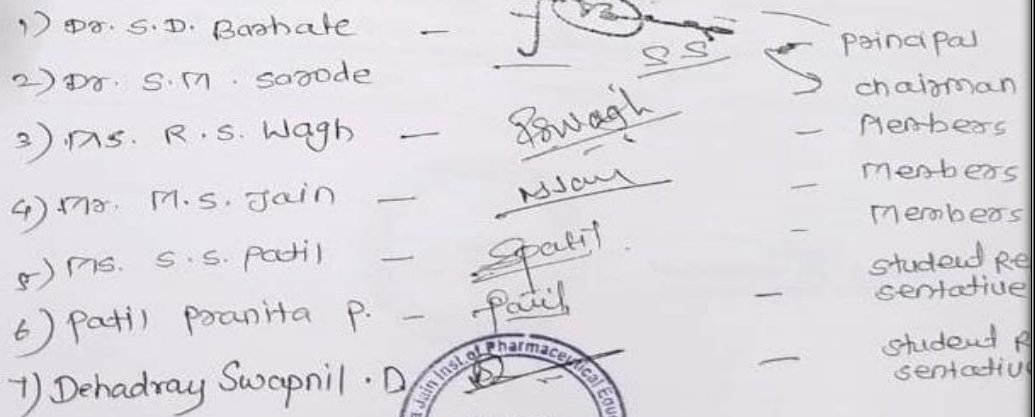 1) Dr. S.D. Barhate - Principal
SS
2) Dr. S.M. Sarode chairman
3) Ms. R.S. Wagh - RSWagh - Members
4) Mr. M.S. Jain - MSJain - members
5) Ms. S.S. Patil - SPatil. - Members
6) Patil Pranita P. - Patil - student Re
sentative
7) Dehadray Swapnil.D - student R
sentativ
a Jain Inst. of Pharmaceutical Edu